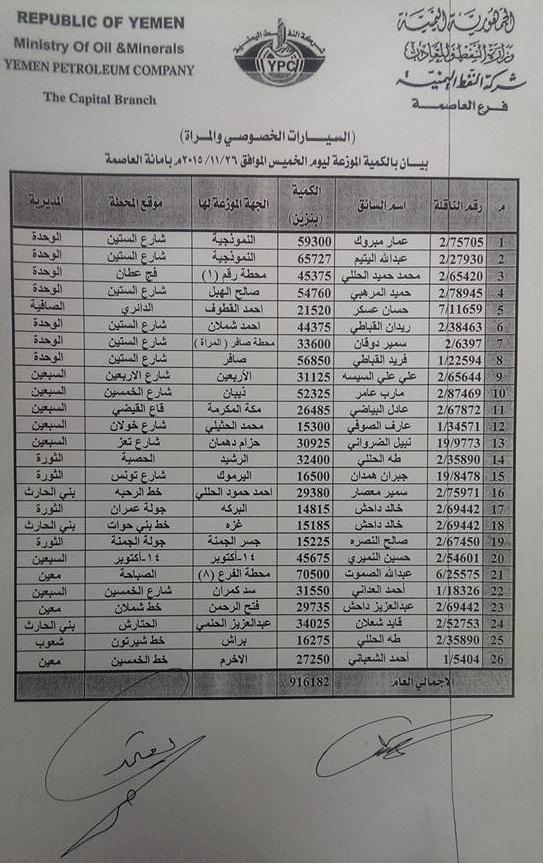 REPUBLIC OF YEMEN
Ministry Of Oil &Minerals
YEMEN PETROLEUM COMPANY
The Capital Branch
شركة النفط اليمنية
YPC
الجمهورية اليمنية
وزارة النفط والمعادن
شركة النفط اليمنية
فرع العاصمة
(السيارات الخصوصي والمراة)
بيان بالكمية الموزعة ليوم الخميس الموافق ٢٠١٥/١١/٢٦م بامانة العاصمة
م رقم الناقلة اسم السائق الكمية (بنزين) الجهة الموزعة لها موقع المحطة المديرية
1 2/75705 عمار مبروك 59300 النموذجية شارع الستين الوحدة
2 2/27930 عبدالله اليتيم 65727 النموذجية شارع الستين الوحدة
3 2/65420 محمد حميد الحللي 45375 محطة رقم (١) فج عطان الوحدة
4 2/78945 حميد المرهبي 54760 صالح الهيل شارع الستين الوحدة
5 7/11659 حسان عسكر 21520 احمد القطوف الدائري الصافية
6 2/38463 ريدان القباطي 44375 احمد شملان شارع الستين الوحدة
7 2/6397 سمير دوقان 33600 محطة صافر (المراة) شارع الستين الوحدة
8 1/22594 فريد القباطي 56850 صافر شارع الستين الوحدة
9 2/65644 علي علي السيسه 31125 الأربعين شارع الاربعين السبعين
10 2/87469 مارب عامر 52325 ذيبان شارع الخمسين السبعين
11 2/67872 عادل البياضي 26485 مكة المكرمة قاع القيضي السبعين
12 1/34571 عارف الصوفي 15300 محمد الحثيلي شارع خولان السبعين
13 19/9773 نبيل الضرواني 30925 حزام دهمان شارع تعز السبعين
14 2/35890 طه الحللي 32400 الرشيد الحصبة الثورة
15 19/8478 جبران همدان 16500 اليرموك شارع تونس الثورة
16 2/75971 سمير معصار 29380 احمد حمود الحللي خط الرحبه بني الحارث
17 2/69442 خالد داحش 14815 البركه جولة عمران الثورة
18 2/69442 خالد داحش 15185 غزه خط بني حوات بني الحارث
19 2/67450 صالح النصره 15225 جسر الجمنة جولة الجمنة الثورة
20 2/54601 حسين النميري 45675 ١٤-أكتوبر ١٤-أكتوبر السبعين
21 6/25575 عبدالله الصموت 70500 محطة الفرع (٨) الصباحة معين
22 1/18326 أحمد العداني 31550 سد كمران شارع الخمسين السبعين
23 2/69442 عبدالعزيز داحش 29735 فتح الرحمن خط شملان معين
24 2/52753 قايد شعلان 34025 عبدالعزيز الحنمي الحتارش بني الحارث
25 2/35890 طه الحللي 16275 براش خط شيرتون شعوب
26 1/5404 أحمد الشعباني 27250 الاخرم خط الخمسين معين
الاجمالي العام 916182
يعتمد